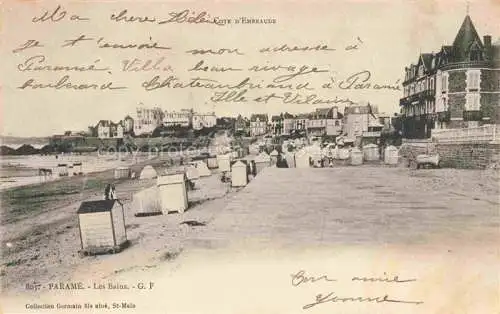 CÔTE D'EMERAUDE
Ma chère Hélène
Je t'envoie mon adresse à
Paramé. Villa beau rivage
boulevard Chateaubriand à Paramé
Ille et Vilaine
8037 - PARAMÉ. - Les Bains. - G. F
Collection Germain fils aîné, St-Malo
Ton amie
Yvonne